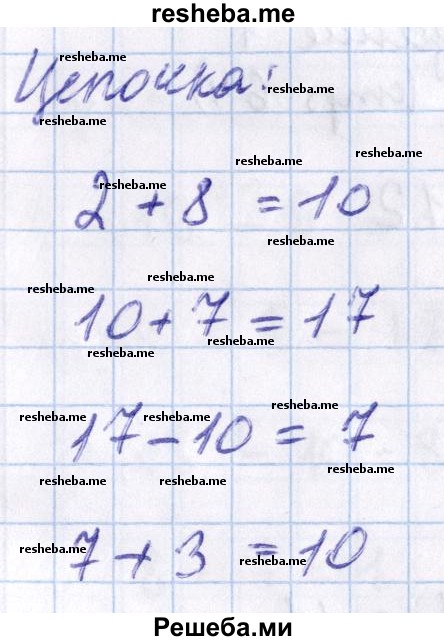 resheba.me
resheba.me
Цепочка:
resheba.me
resheba.me
resheba.me
resheba.me
resheba.me
2 + 8 = 10
resheba.me
resheba.me
resheba.me
10 + 7 = 17
resheba.me
resheba.me
resheba.me
resheba.me
resheba.me
17 - 10 = 7
resheba.me
resheba.me
resheba.me
resheba.me
7 + 3 = 10
resheba.me
Решеба.ми